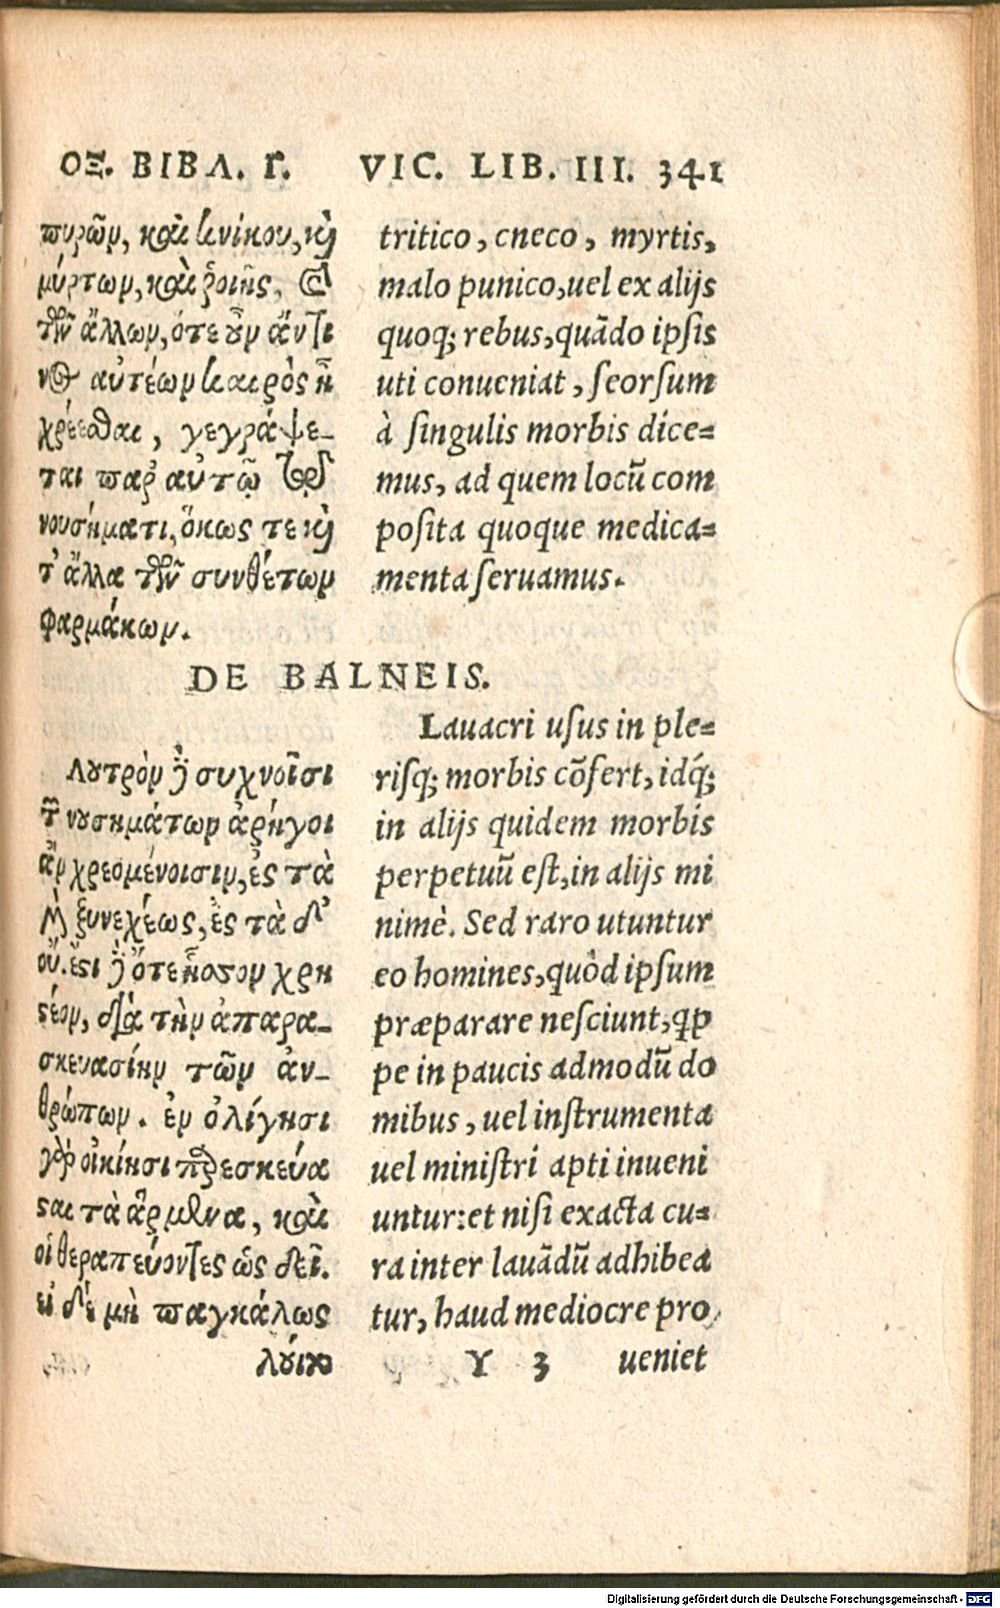 ΟΞ. ΒΙΒΛ. Γ.
πυρῶν, καὶ κνίκου, καὶ
μύρτων, καὶ ῥοιῆς, καὶ
τῶν ἄλλων, ὅτε οὖν ἄντι
νος αὐτέων καιρὸς ᾖ
χρέεσθαι, γεγράψε-
ται παρ' αὐτῷ τῷ
νουσήματι, ὅκως τε καὶ
τ' ἄλλα τῶν συνθέτων
φαρμάκων.
VIC. LIB. III. 341
tritico, cneco, myrtis,
malo punico, uel ex alijs
quoq; rebus, quãdo ipsis
uti conueniat, seorsum
à singulis morbis dice=
mus, ad quem locũ com
posita quoque medica=
menta seruamus.
DE BALNEIS.
Λουτρὸν δὲ συχνοῖσι
τῶν νουσημάτων ἀρήγοι
ἂν χρεομένοισιν, ἐς τὰ
μὲν ξυνεχέως, ἐς τὰ δ'
οὔ. ἔστι δὲ ὅτε ἧσσον χρη
στέον, διὰ τὴν ἀπαρα-
σκευασίην τῶν ἀν-
θρώπων. ἐν ὀλίγησι
γὰρ οἰκίησι παρεσκεύα
σται τὰ ἄρμενα, καὶ
οἱ θεραπεύοντες ὡς δεῖ.
εἰ δὲ μὴ παγκάλως
λούοιτο
Lauacri usus in ple=
risq; morbis cõfert, idq́;
in alijs quidem morbis
perpetuũ est, in alijs mi
nimè. Sed raro utuntur
eo homines, quòd ipsum
præparare nesciunt, qp
pe in paucis admodũ do
mibus, uel instrumenta
uel ministri apti inueni
untur: et nisi exacta cu=
ra inter lauãdũ adhibea
tur, haud mediocre pro
Y 3 ueniet
Digitalisierung gefördert durch die Deutsche Forschungsgemeinschaft - DFG